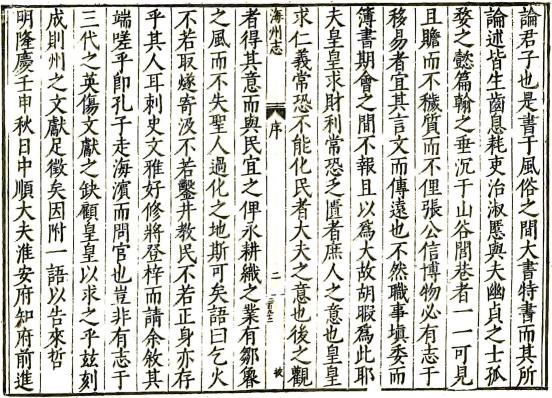 論君子也是書于風俗之間大書特書而其所
論述皆生齒息耗吏治淑慝與夫幽貞之士孤
嫠之懿篇翰之垂沉于山谷閭巷者一一可見
且贍而不穢質而不俚張公信博物必有志于
移易者宜其言文而傳遠也不然職事填委而
簿書期會之間不報且以爲大故胡暇爲此耶
夫皇皇求財利常恐乏匱者庶人之意也皇皇
求仁義常恐不能化民者大夫之意也後之觀
海州志
序
二
者得其意而與民宜之俾永耕織之業有鄒魯
之風而不失聖人過化之地斯可矣語曰乞火
不若取燧寄汲不若鑿井教民不若正身亦存
乎其人耳刺史文雅好修將登梓而請余敘其
端嗟乎卽孔子走海濱而問官也豈非有志于
三代之英傷文獻之缺顧皇皇以求之乎玆刻
成則州之文獻足徵矣因附一語以告來哲
明隆慶壬申秋日中順大夫淮安府知府前進